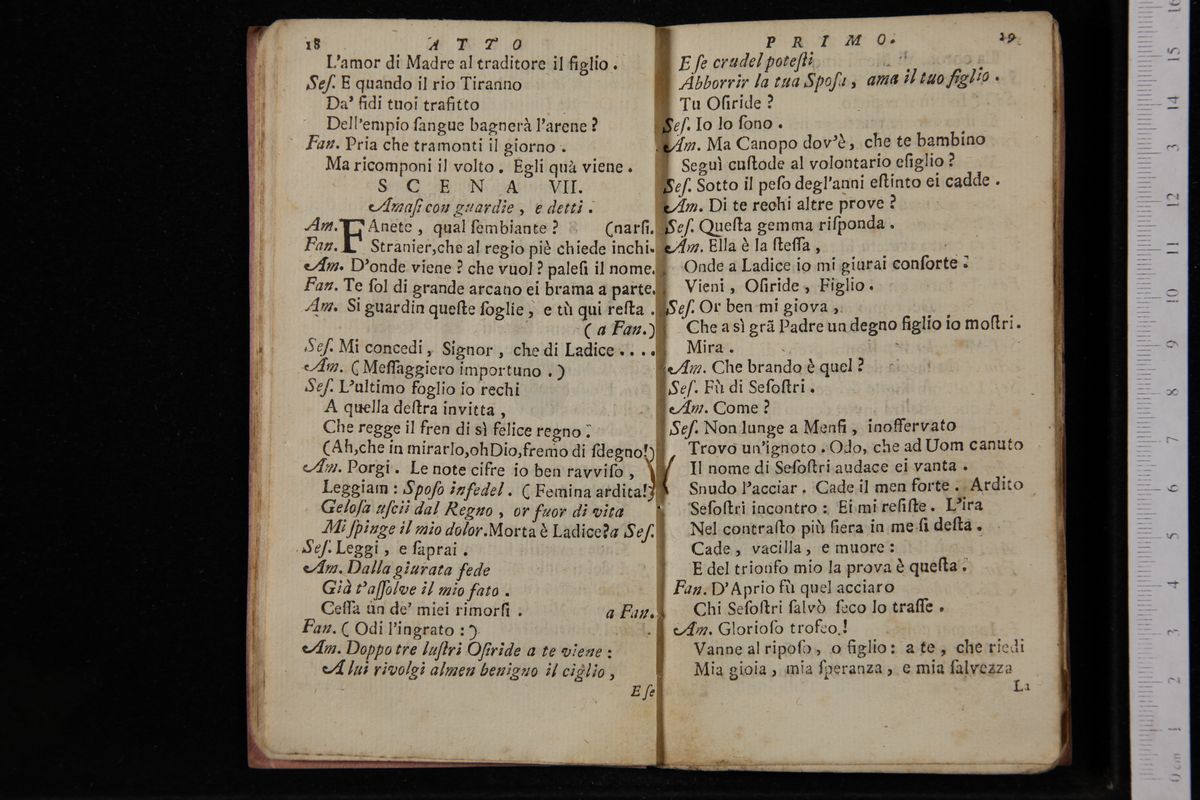 18 ATTO
L'amor di Madre al traditore il figlio.
Seſ. E quando il rio Tiranno
Da' fidi tuoi trafitto
Dell'empio ſangue bagnerà l'arene?
Fan. Pria che tramonti il giorno.
Ma ricomponi il volto. Egli quà viene.
SCENA VII.
Amaſi con guardie, e detti.
Am. FAnete, qual ſembiante? (narſi.
Fan. Stranier,che al regio piè chiede inchi-
Am. D'onde viene? che vuol? paleſi il nome.
Fan. Te ſol di grande arcano ei brama a parte.
Am. Si guardin queſte ſoglie, e tù qui reſta.
(a Fan.)
Seſ. Mi concedi, Signor, che di Ladice....
Am. (Meſſaggiero importuno.)
Seſ. L'ultimo foglio io rechi
A quella deſtra invitta,
Che regge il fren di sì felice regno.
(Ah,che in mirarlo,oh Dio,fremo di ſdegno!)
Am. Porgi. Le note cifre io ben ravviſo,
Leggiam: Spoſo infedel. (Femina ardita!)
Geloſa uſcii dal Regno, or fuor di vita
Mi ſpinge il mio dolor. Morta è Ladice? a Seſ.
Seſ. Leggi, e ſaprai.
Am. Dalla giurata fede
Già t'aſſolve il mio fato.
Ceſſa un de' miei rimorſi. a Fan.
Fan. (Odi l'ingrato:)
Am. Doppo tre luſtri Oſiride a te viene:
A lui rivolgi almen benigno il ciglio,
E ſe
PRIMO. 19
E ſe crudel poteſti
Abborrir la tua Spoſa, ama il tuo figlio.
Tu Oſiride?
Seſ. Io lo ſono.
Am. Ma Canopo dov'è, che te bambino
Seguì cuſtode al volontario eſiglio?
Seſ. Sotto il peſo degl'anni eſtinto ei cadde.
Am. Di te rechi altre prove?
Seſ. Queſta gemma riſponda.
Am. Ella è la ſteſſa,
Onde a Ladice io mi giurai conſorte.
Vieni, Oſiride, Figlio.
Seſ. Or ben mi giova,
Che a sì grã Padre un degno figlio io moſtri.
Mira.
Am. Che brando è quel?
Seſ. Fù di Seſoſtri.
Am. Come?
Seſ. Non lunge a Menfi, inoſſervato
Trovo un'ignoto. Odo, che ad Uom canuto
Il nome di Seſoſtri audace ei vanta.
Snudo l'acciar. Cade il men forte. Ardito
Seſoſtri incontro: Ei mi reſiſte. L'ira
Nel contraſto più fiera in me ſi deſta.
Cade, vacilla, e muore:
E del trionfo mio la prova è queſta.
Fan. D'Aprio fù quel acciaro
Chi Seſoſtri ſalvò ſeco lo traſſe.
Am. Glorioſo trofeo!
Vanne al ripoſo, o figlio: a te, che riedi
Mia gioia, mia ſperanza, e mia ſalvezza
La